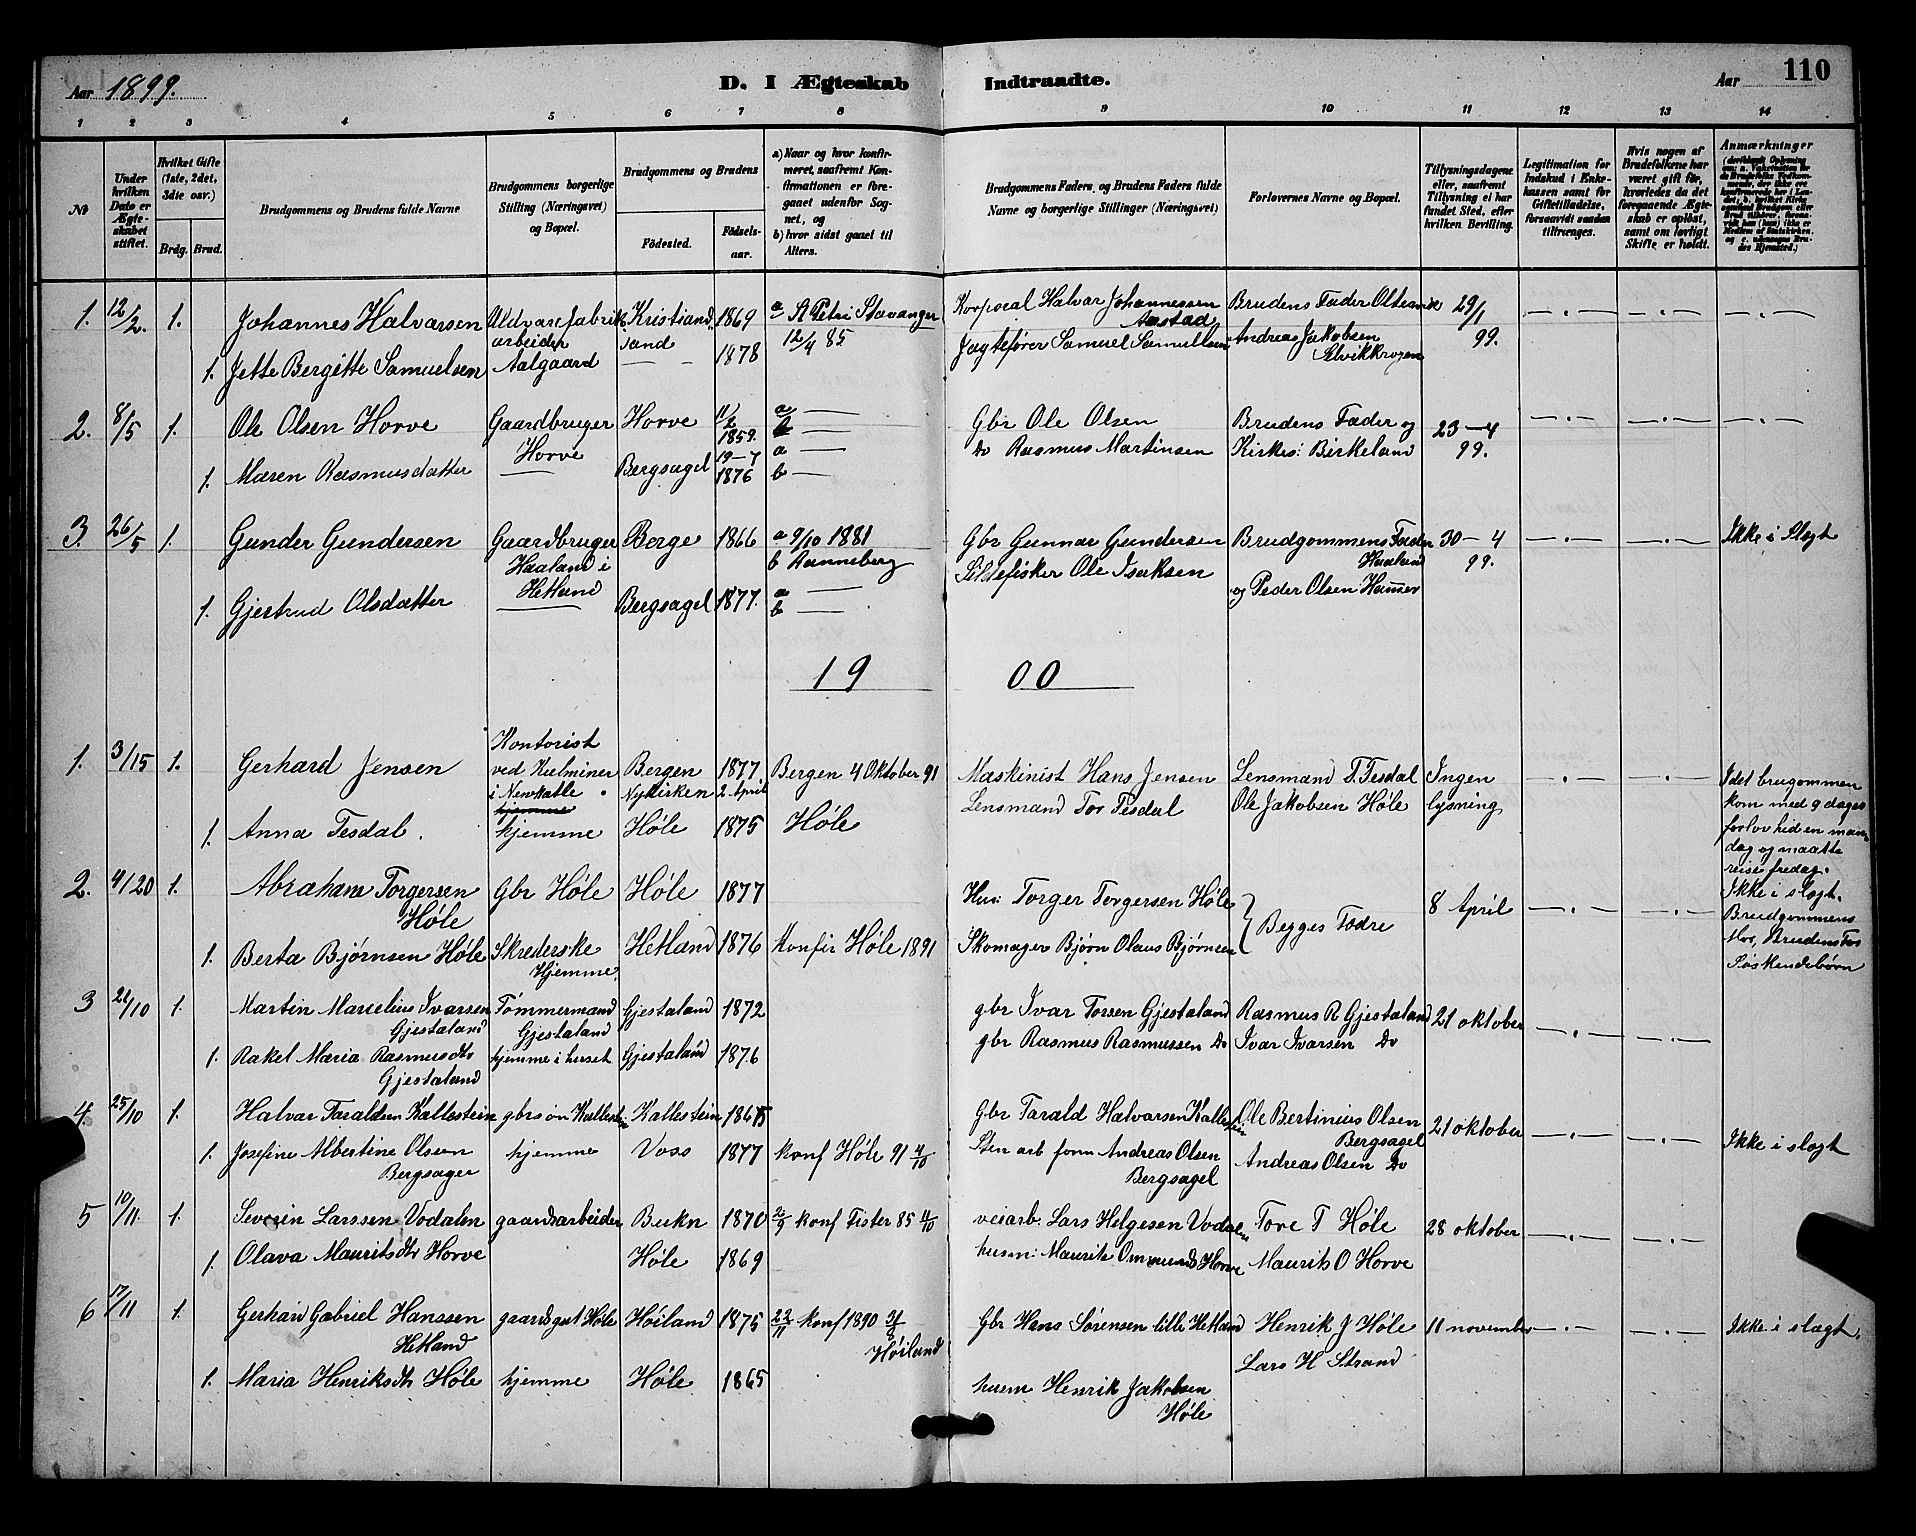 Aar 1899.
D. I Ægteskab Indtraadte.
Aar 110
1 2 3 4 5 6 7 8 9 10 11 12 13 14
№
Under hvilken Dato er Ægteskabet stiftet.
Hvilket Gifte (1ste, 2det, 3die osv.)
Brdg. Brud.
Brudgommens og Brudens fulde Navne
Brudgommens borgerlige Stilling (Næringsvei) og Bopæl.
Brudgommens og Brudens
Födested. Födselsaar.
a) Naar og hvor konfirmeret, saafremt Konfirmationen er foregaaet udenfor Sognet, og
b) hvor sidst gaaet til Alters.
Brudgommens Faders, og Brudens Faders fulde Navne og borgerlige Stillinger (Næringsvei)
Forlovernes Navne og Bopæl.
Tillysningsdagene eller, saafremt Tillysning ei har fundet Sted, efter hvilken Bevilling.
Legitimation for Indskud i Enkekassen samt for Giftetilladelse, forsaavidt saadan tiltrænges.
Hvis nogen af Brudefolkene har været gift för, hvorledes da det foregaaende Ægteskab er oplöst, samt om lovligt Skifte er holdt.
Anmærkninger
1. 12/2. 1. Johannes Halvarsen Uldvarefabrik Kristiand 1869 a St Petri Stavanger Korporal Halvar Johannessen Brudens Fader Oltesvik 29/1
arbeider sand 12/4 85 Aastad Andreas Jakobsen 99.
1. Jette Bergitte Samuelsen Aalgaard — 1878 Jagtefører Samuel Samuelsen Selvikkrogen
2. 8/5 1. Ole Olsen Horve Gaardbruger Horve 11/2 1859. a — b — Gbr Ole Olsen Brudens Fader og 23-4
Horve 19-7 a — Do Rasmus Martinsen Kirkes: Birkeland 99.
1. Maren Rasmusdatter — Bergsagel 1876 b —
3. 26/5 1. Gunder Gundersen Gaardbruger Berge 1866 a 9/10 1881 Gbr Gunnar Gundersen Brudgommens Fader 30-4 Ikke i Slegt
Haaland i b Ranneberg Sildefisker Ole Isaksen Haaland 99.
Hetland og Peder Olsen Hammer
1. Gjertrud Olsdatter — Bergsagel 1877. a — b —
19 00
1. 3/15 1. Gerhard Jensen Kontorist ved Kulminer i Newkatle Bergen Nykirken 1877. 2 April Bergen 4 Oktober 91 Maskinist Hans Jensen Lensmand T. Tesdal Ingen lysning
1. Anna Tesdal. hjemme hjemme Høle 1875 Høle Lensmand Tor Tesdal Ole Jakobsen Høle
Idet brugommen
kom med 9 dages
forlov hid en man-
dag og maatte
reise fredag.
2. 4/20 1. Abraham Torgersen Gbr Høle Høle 1877 Hus: Torger Torgersen Høle Begges Fædre 8 April Ikke i slegt.
Høle Brudgommens
1. Berta Bjørnsen Høle Skrederske Hetland 1876 Konfir Høle 1891 Skomager Bjørn Olaus Bjørnsen Mor, Brudens Far
Hjemme Søskendebørn
3 22/10 1. Martin Marcelius Ivarsen Tømmermand Gjestaland 1872 gbr Ivar Torsen Gjestaland Rasmus R Gjestaland 21 oktober
Gjestaland Gjestaland
1. Rakel Maria Rasmusdtr hjemme i huset Gjestaland 1876 gbr Rasmus Rasmussen Do Ivar Ivarsen Do
Gjestaland
4. 25/10 1. Halvar Taraldsen Kallestein gbrsøn Kallestein Kallestein Gbr Tarald Halvarsen Kallestein Ole Bertinius Olsen 21 oktober
Bergsagel
1. Josefine Albertine Olsen hjemme Voss 1877 Konf Høle 91 4/10 Sten arb form Andreas Olsen Andreas Olsen Do Ikke i slegt
Bergsager Bergsagel
5 10/11. 1. Severin Larssen Vodalen gaardsarbeider Bukn 1870 2/9 konf Fister 85 4/10 veiarb. Lars Helgesen Vodalen Tore T Høle 28 oktober
1. Olava Mauritsdtr Horve Høle 1869 husm: Maurits Ommunds Horve Maurits O Horve
6 17/11 1. Gerhard Gabriel Hanssen gaardsgut Høle Høiland 1875 22/11 konf 1890 31/8 Gbr Hans Sørensen lille Hetland Henrik J Høle 11 november Ikke i slægt.
Hetland Høiland Lars H Strand
1. Maria Henriksdtr Høle hjemme Høle 1865 husm Henrik Jakobsen
Høle